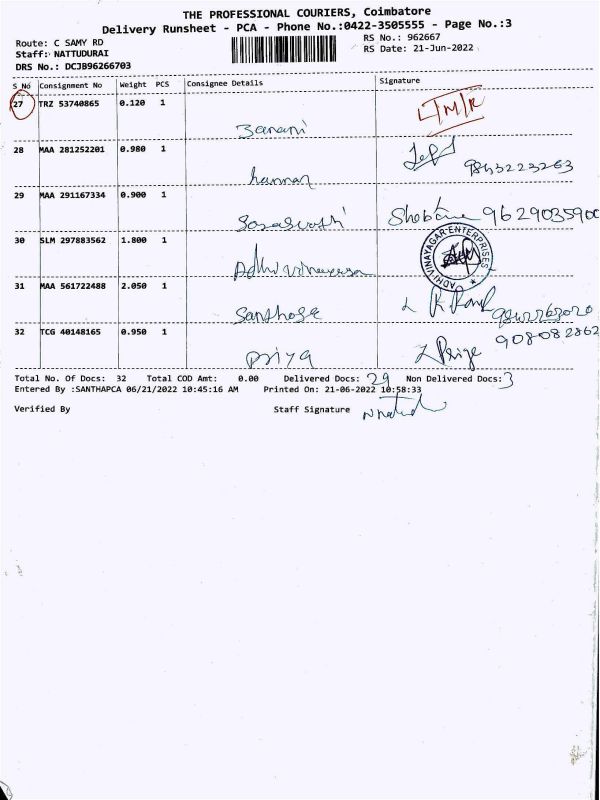 THE PROFESSIONAL COURIERS, Coimbatore
Delivery Runsheet - PCA - Phone No.:0422-3505555 - Page No.:3
Route: C SAMY RD
RS No.: 962667
Staff: NATTUDURAI
RS Date: 21-Jun-2022
DRS No.: DCJB96266703
S No Consignment No Weight PCS Consignee Details Signature
27 TRZ 53740865 0.120 1
28 MAA 281252201 0.980 1
29 MAA 291167334 0.900 1 9629035900
30 SLM 297883562 1.800 1
ADHI VINAYAGAR ENTERPRISES
31 MAA 561722488 2.050 1 Santhose
32 TCG 40148165 0.950 1 priya
Total No. Of Docs: 32 Total COD Amt: 0.00 Delivered Docs: 29 Non Delivered Docs: 3
Entered By :SANTHAPCA 06/21/2022 10:45:16 AM Printed On: 21-06-2022 10:58:33
Verified By Staff Signature